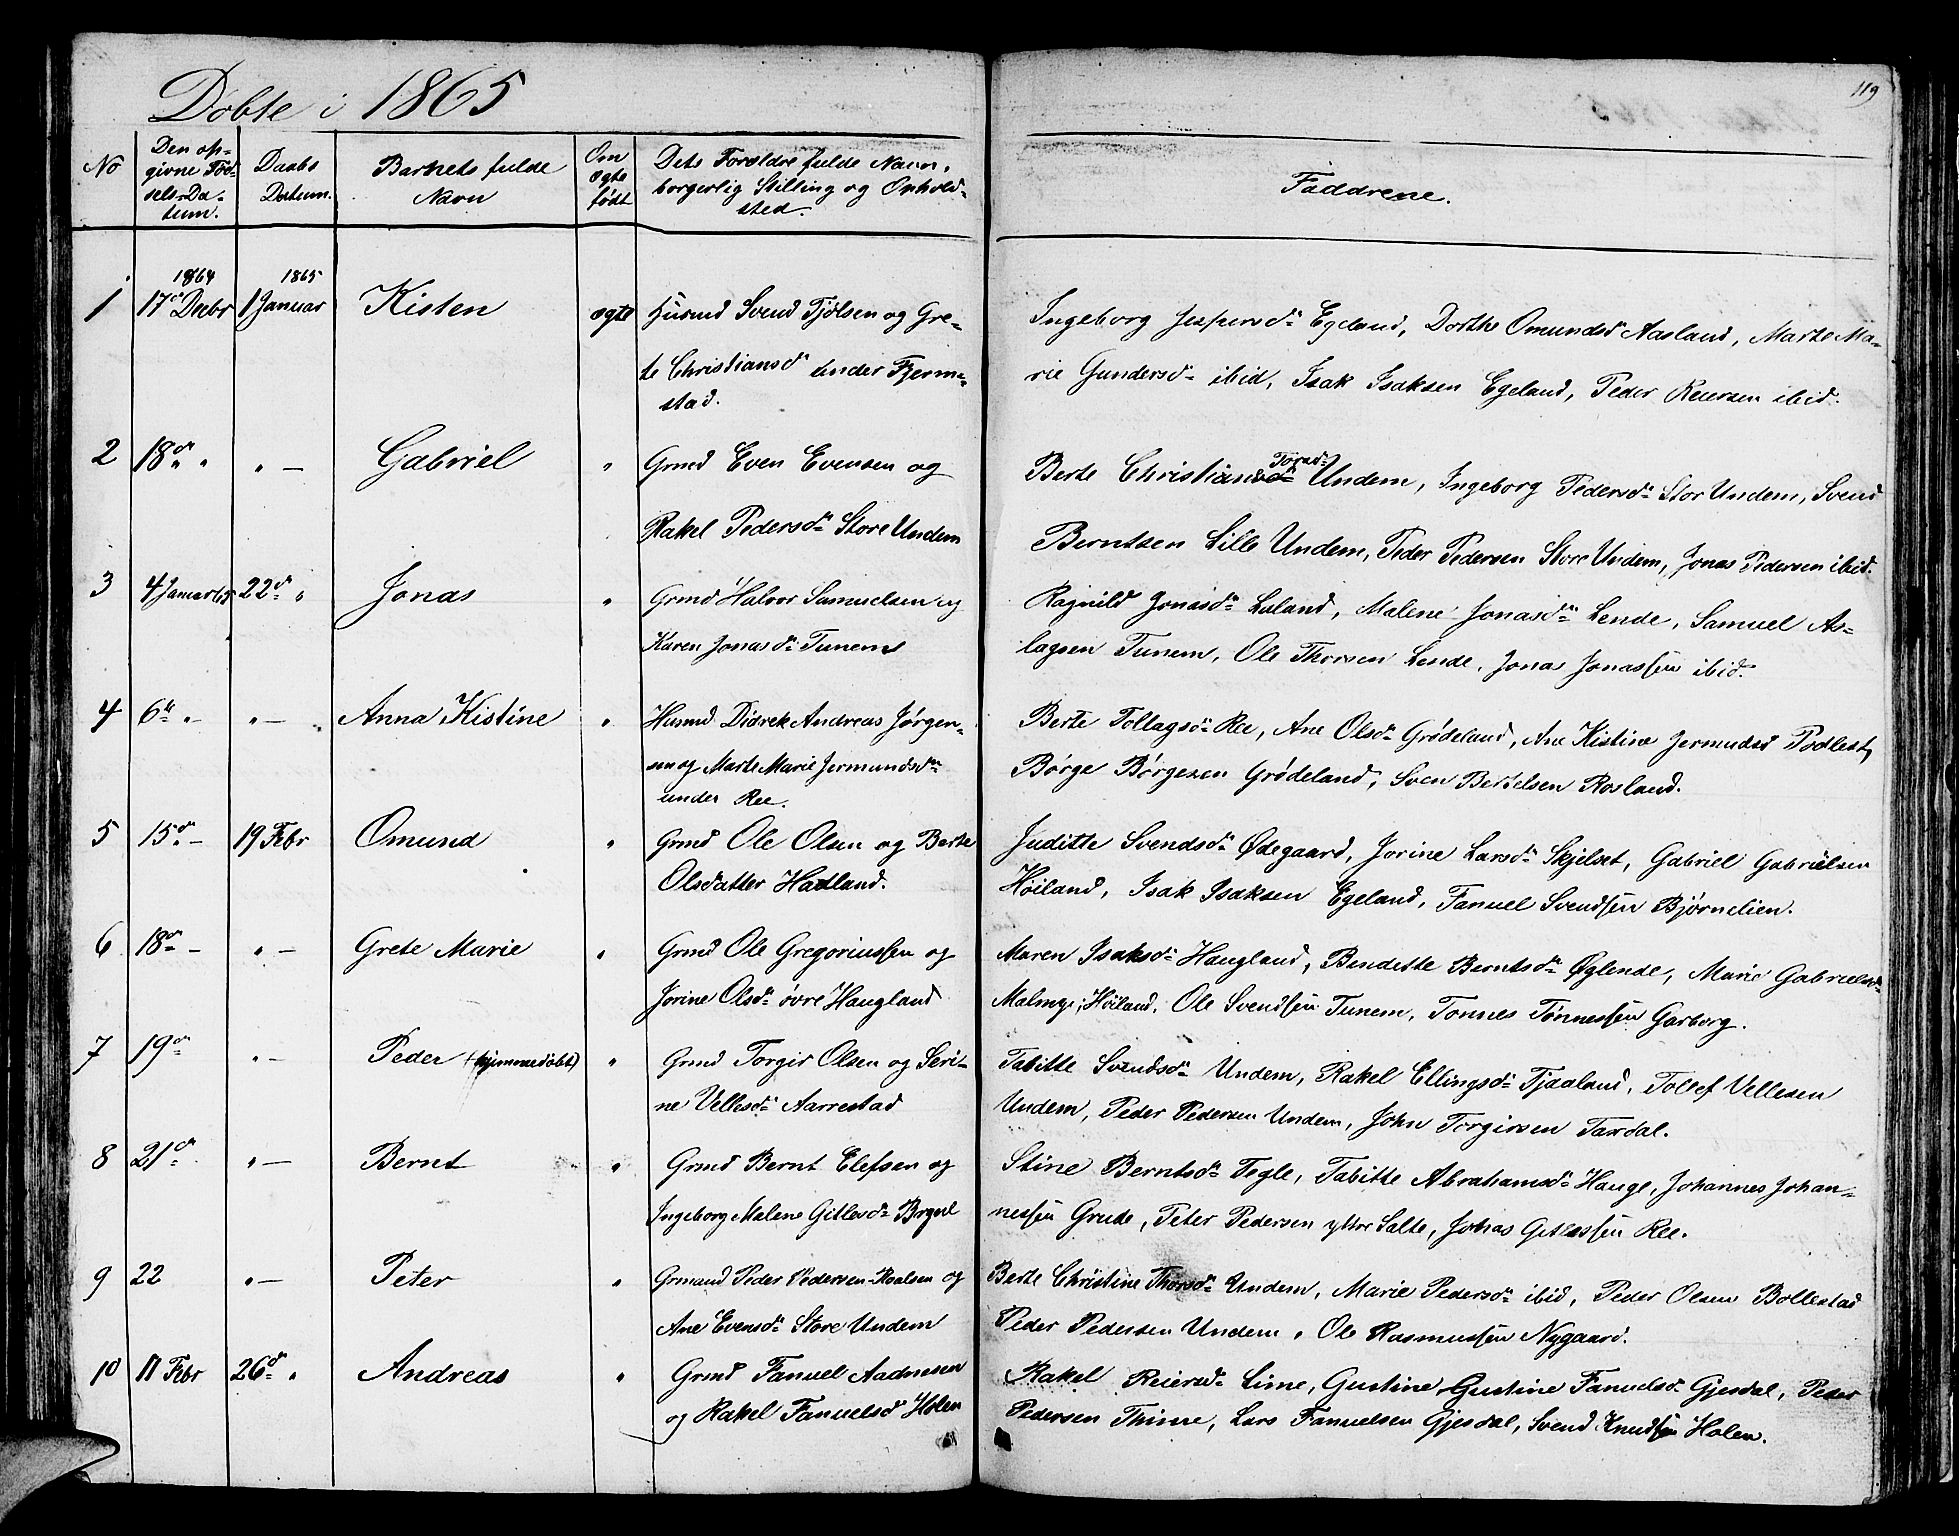 119
Døbte i 1865
No
Den op-
givne Fød-
sels-Da-
tum.
Daabs
Datum.
Barnets fulde
Navn
Om
ægte
født
Dets Forældre fulde Navn,
borgerlig Stilling og Ophold-
sted.
Faddrene.
1864 1865
1 17de Decbr 1 Januar Kisten ægte Husmd Svend Tjølsen og Gre-
te Christiansd under Fjerm-
stad.
Ingeborg Jespersdr Egeland, Dorthe Omundsd Aasland, Marte Ma-
rie Gundersdr ibid, Isak Isaksen Egeland, Peder Reiersen ibid.
2 18de " " — Gabriel " Grmd Even Evensen og
Rakel Pedersdr Store Undem
Torsdr
Berte Christiansdr Undem, Ingeborg Pedersdr Stor Undem, Svend
Berntsen Lille Undem, Peder Pedersen Store Undem, Jonas Pedersen ibid.
3 4 Januar 65 22de " Jonas " Grmd Halvor Samuelsen og
Karen Jonasdr Tunem
Ragnild Jonasdr Luland, Malene Jonasdr Lende, Samuel As-
lagsen Tunem, Ole Thorsen Lende, Jonas Jonassen ibid.
4 6te " " — Anna Kistine " Husmd Didrek Andreas Jørgen-
sen og Marte Marie Jermundsdr
under Ree.
Berte Tollagsdr Ree, Ane Olsdr Grødeland, Ane Kistine Jermudsd Podlest,
Børge Børgesen Grødeland, Sven Bertelsen Rosland.
5 15de — 19 Febr Omund " Grmd Ole Olsen og Berte
Olsdatter Hadland.
Juditte Svendsdr Ødegaard, Jorine Larsdr Skjelset, Gabriel Gabrielsen
Høiland, Isak Isaksen Egeland, Fanuel Svendsen Bjørnelien.
6 18de — " — Grete Marie " Grmd Ole Gregoriussen og
Jorine Olsdr øvre Haugland
Maren Isaksdr Haugland, Bendette Berntsdr Øglende, Marie Gabrielsdr
Malmge, Høiland. Ole Svendsen Tunem, Tonnes Tønnessen Garborg.
7 19de " — Peder (hjemmedøbt) " Grmd Torgir Olsen og Seri-
ne Vellesdr Aarrestad
Tabitte Svendsdr Undem, Rakel Ellingsdr Tjaaland, Tollef Vellesen
Undem, Peder Pedersen Undem, John Torgirsen Taxdal.
8 21de " — Bernt " Grmd Bernt Elefsen og
Ingeborg Malene Gitlesdr Brynе
Stine Berntsdr Tegle, Tabitte Abrahamsdr Hauge, Johannes Johan-
nessen Grude, Peter Pedersen yttre Salte, Johas Gitlessen Ree.
9 22 " — Peter " Grmand Peder Pedersen Roalsen og
Ane Evensdr Store Undem
Berte Christine Thorsdr Undem, Marie Pedersdr ibid, Peder Olsen Bollestad
Peder Pedersen Undem, Ole Rasmussen Nygaard.
10 11 Febr 26de " Andreas " Grmd Fanuel Aadnesen
og Rakel Fanuelsd Holen
Rakel Reiersdr Lime, Gustine Gustine Fanuelsdr Gjesdal, Peder
Pedersen Thime, Lars Fanuelsen Gjesdal, Svend Knudsen Holen.